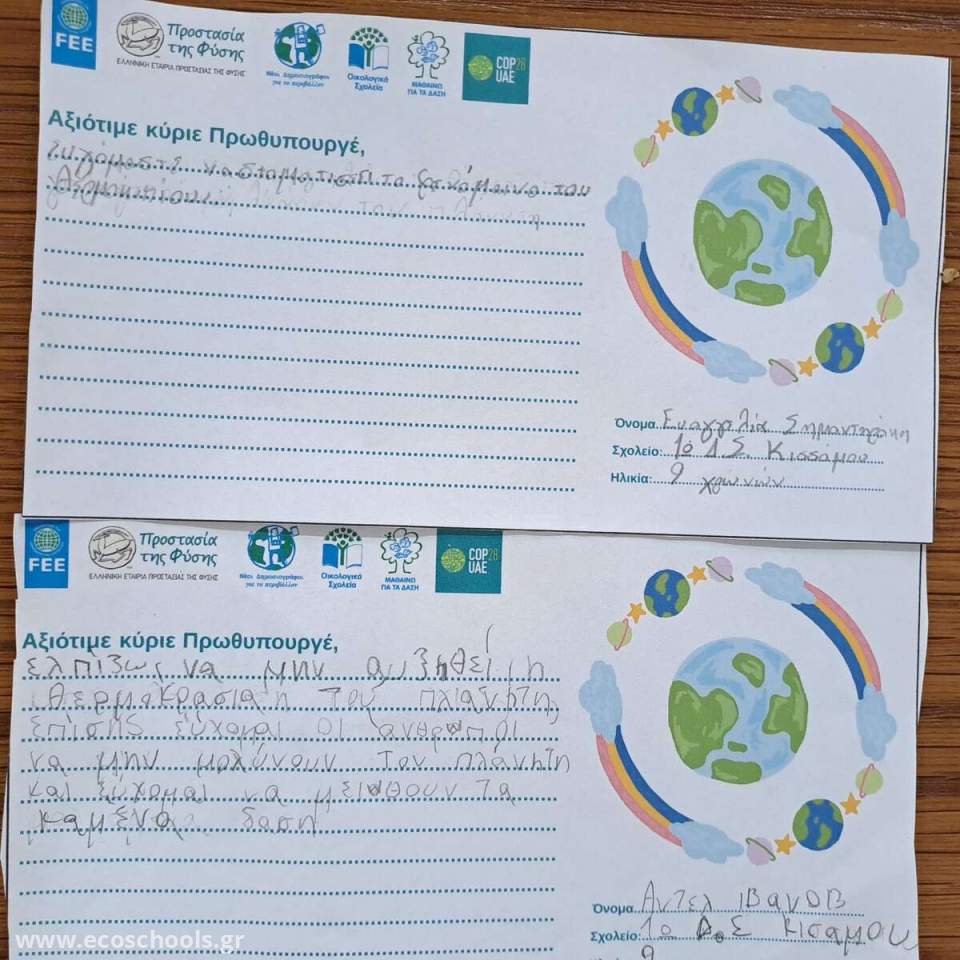 FEE
Προστασία
της Φύσης
ΕΛΛΗΝΙΚΗ ΕΤΑΙΡΙΑ ΠΡΟΣΤΑΣΙΑΣ ΤΗΣ ΦΥΣΗΣ
Νέοι Δημοσιογράφοι
για το περιβάλλον
Οικολογικά
Σχολεία
ΜΑΘΑΙΝΩ
ΓΙΑ ΤΑ ΔΑΣΗ
COP28
UAE
Αξιότιμε κύριε Πρωθυπουργέ,
να σταματισει το του
Όνομα Ευαγγελία Σημαντηράκη
Σχολείο: 1ο Δ.Σ. Κισσάμου
Ηλικία: 9 χρωνών
FEE
Προστασία
της Φύσης
ΕΛΛΗΝΙΚΗ ΕΤΑΙΡΙΑ ΠΡΟΣΤΑΣΙΑΣ ΤΗΣ ΦΥΣΗΣ
Νέοι Δημοσιογράφοι
για το περιβάλλον
Οικολογικά
Σχολεία
ΜΑΘΑΙΝΩ
ΓΙΑ ΤΑ ΔΑΣΗ
COP28
UAE
Αξιότιμε κύριε Πρωθυπουργέ,
ελπιζω να μην αυξηθεί η
θερμοκρασια του πλανητη
επισης εύχομαι οι ανθρωποι
να μην μολύνουν τον πλανήτη
και εύχομαι να μειωθουν τα
καμενα δαση
Όνομα Αντελ Ιβανοβ
Σχολείο: 1ο Δ.Σ Κισαμου
9
www.ecoschools.gr